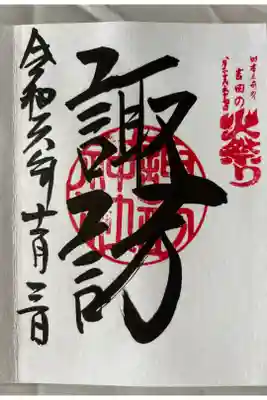 日本三奇祭
吉田の
火祭り
諏訪
令和六年十一月三日